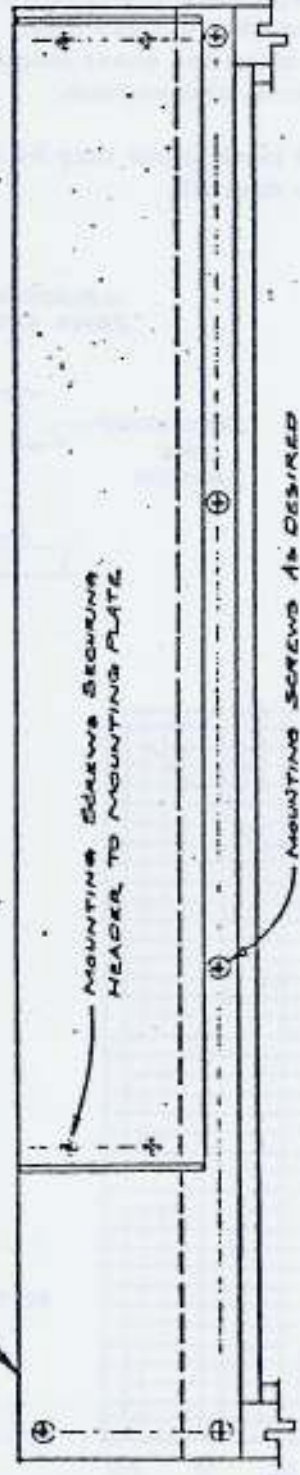 MOUNTING SCREWS SECURING
HEADER TO MOUNTING PLATE
MOUNTING SCREWS AS DESIRED